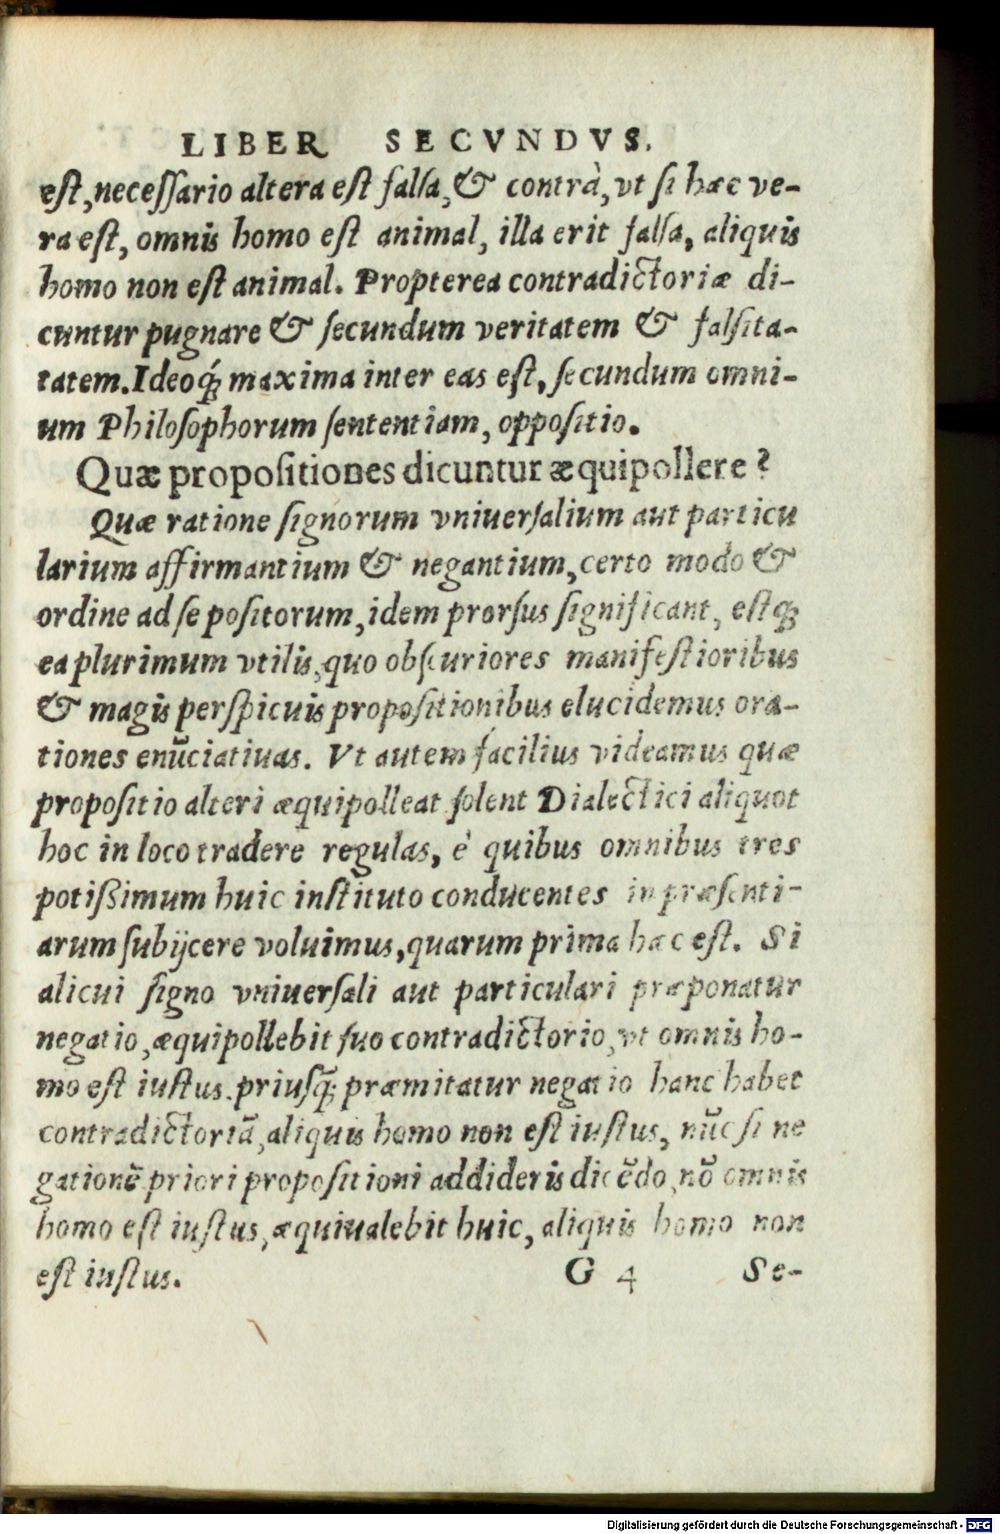 LIBER SECVNDVS.
est, necessario altera est falsa, & contrà, vt si hæc ve-
ra est, omnis homo est animal, illa erit falsa, aliquis
homo non est animal. Propterea contradictoriæ di-
cuntur pugnare & secundum veritatem & falsita-
tatem. Ideoq́; maxima inter eas est, secundum omni-
um Philosophorum sententiam, oppositio.
Quæ propositiones dicuntur æquipollere?
Quæ ratione signorum vniuersalium aut particu
larium affirmantium & negantium, certo modo &
ordine ad se positorum, idem prorsus significant, estq;
ea plurimum vtilis, quo obscuriores manifestioribus
& magis perspicuis propositionibus elucidemus ora-
tiones enũciatiuas. Vt autem facilius videamus quæ
propositio alteri æquipolleat solent Dialectici aliquot
hoc in loco tradere regulas, è quibus omnibus tres
potißimum huic instituto conducentes in præsenti-
arum subijcere voluimus, quarum prima hæc est. Si
alicui signo vniuersali aut particulari præponatur
negatio, æquipollebit suo contradictorio, vt omnis ho-
mo est iustus. priusq̃; præmitatur negatio hanc habet
contradictoriã, aliquis homo non est iustus, nũc si ne
gationẽ priori propositioni addideris dicẽdo, nõ omnis
homo est iustus, æquiualebit huic, aliquis homo non
est iustus.
G 4 Se-
Digitalisierung gefördert durch die Deutsche Forschungsgemeinschaft - DFG